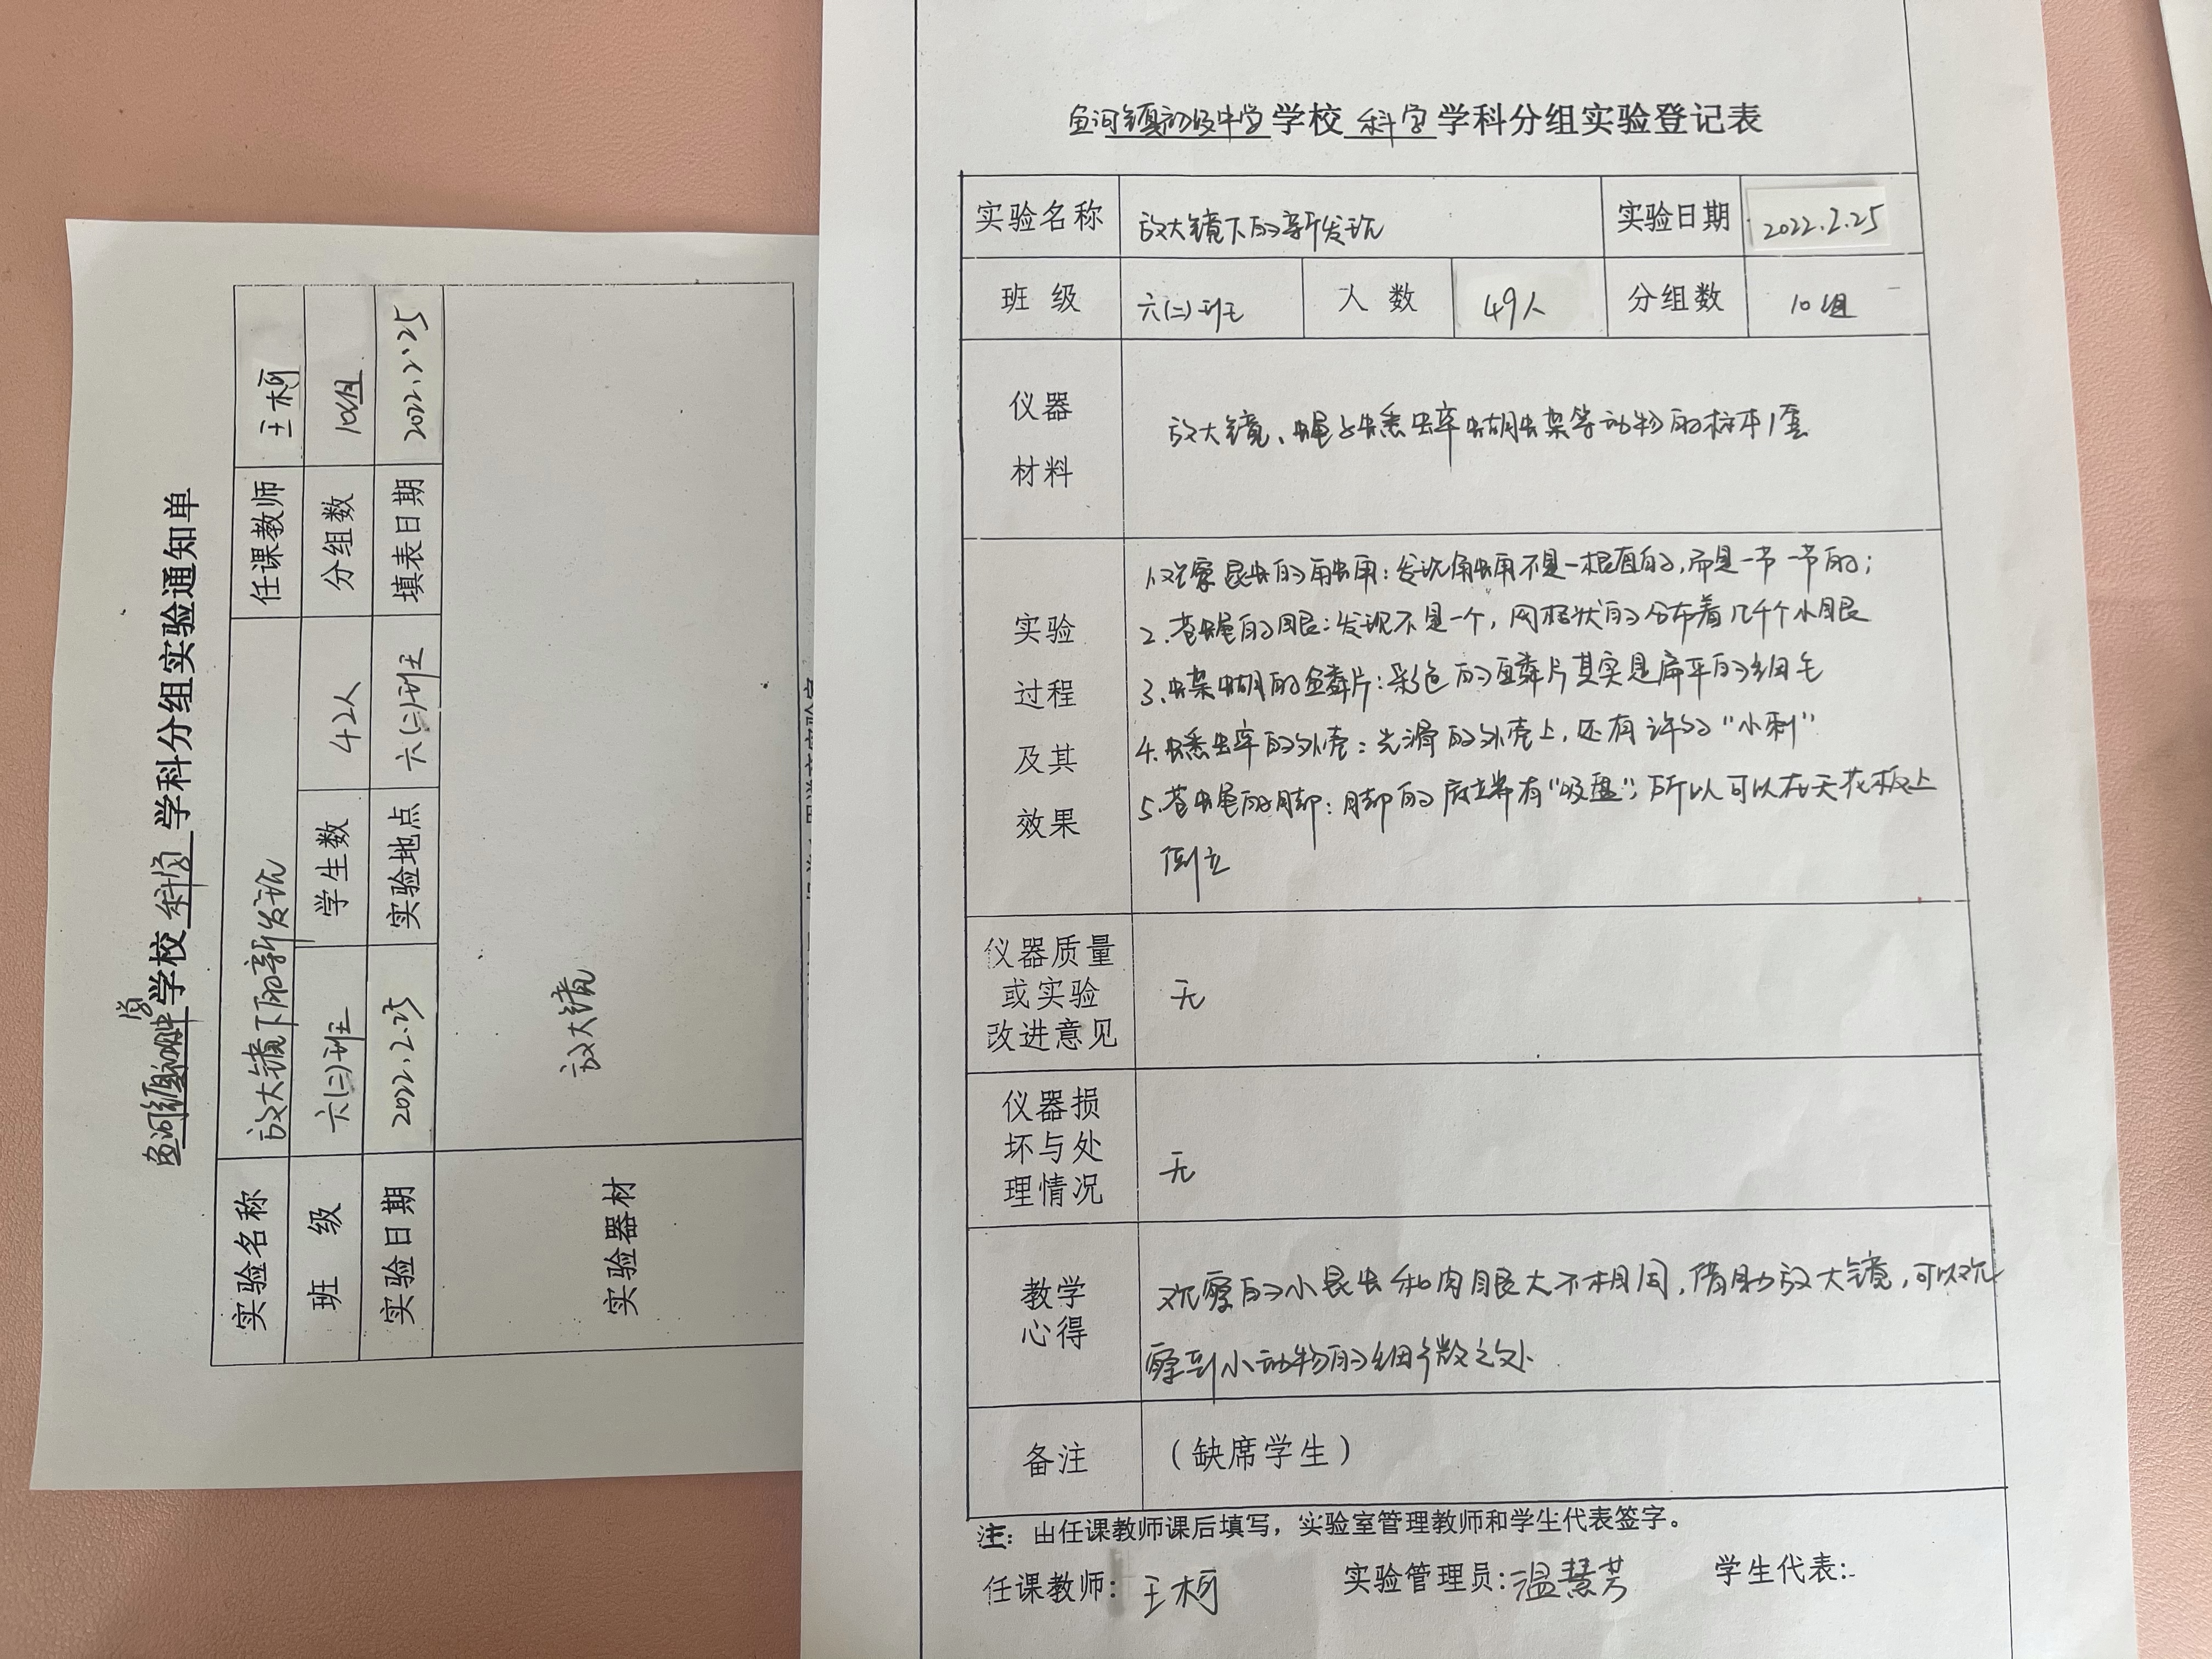 鱼河镇初级中学学校 科学 学科分组实验通知单
实验名称 放大镜下的新发现 任课教师 王柯
班 级 六(二)班 学生数 42人 分组数 10组
实验日期 2022.2.25 实验地点 六(二)班 填表日期 2022.2.25
实验器材 放大镜
鱼河镇初级中学学校 科学 学科分组实验登记表
实验名称 放大镜下的新发现 实验日期 2022.2.25
班 级 六(二)班 人 数 49人 分组数 10组
仪器
材料
放大镜、蝇子蟋蟀蝴蝶等动物的标本1套
实验
过程
及其
效果
1.观察昆虫的触角:发现角触角不是一根直的,而是一节一节的;
2.苍蝇的眼:发现不是一个,网格状的分布着几千个小眼
3.蝶蝴的鳞片:彩色的鳞片其实是扁平的细毛
4.蟋蟀的外壳:光滑的外壳上,还有许多"小刺"
5.苍蝇的脚:脚的底端有"吸盘",所以可以在天花板上
倒立
仪器质量
或实验
改进意见
无
仪器损
坏与处
理情况
无
教学
心得
观察的小昆虫和肉眼大不相同,借助放大镜,可以观
察到小动物的细微之处
备注 (缺席学生)
注:由任课教师课后填写,实验室管理教师和学生代表签字。
任课教师:王柯 实验管理员:温慧芳 学生代表: